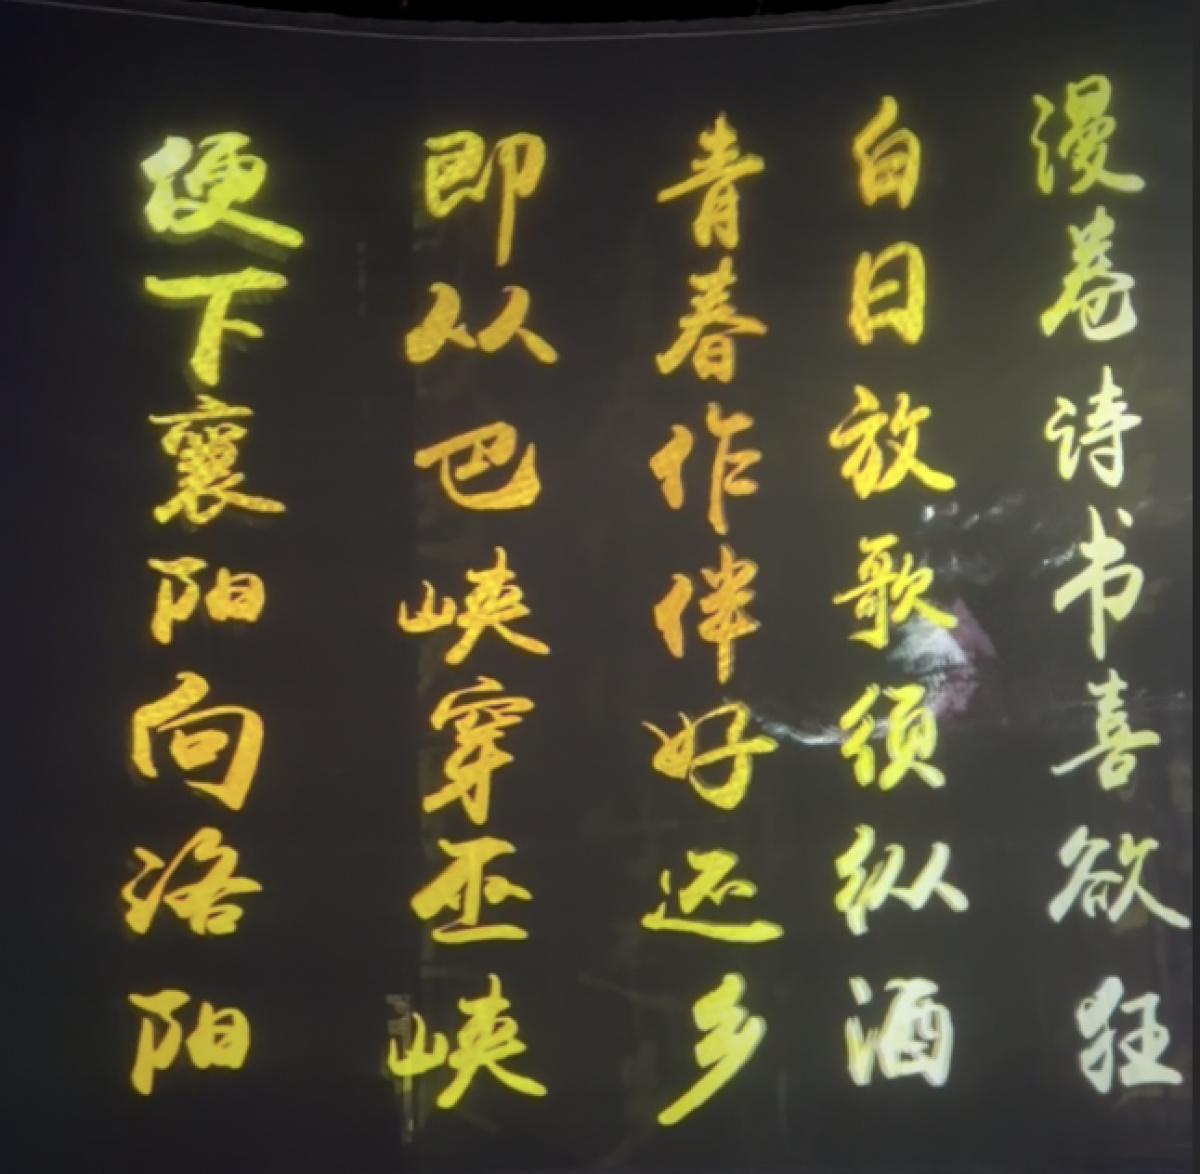 漫卷诗书喜欲狂
白日放歌须纵酒
青春作伴好还乡
即从巴峡穿巫峡
便下襄阳向洛阳